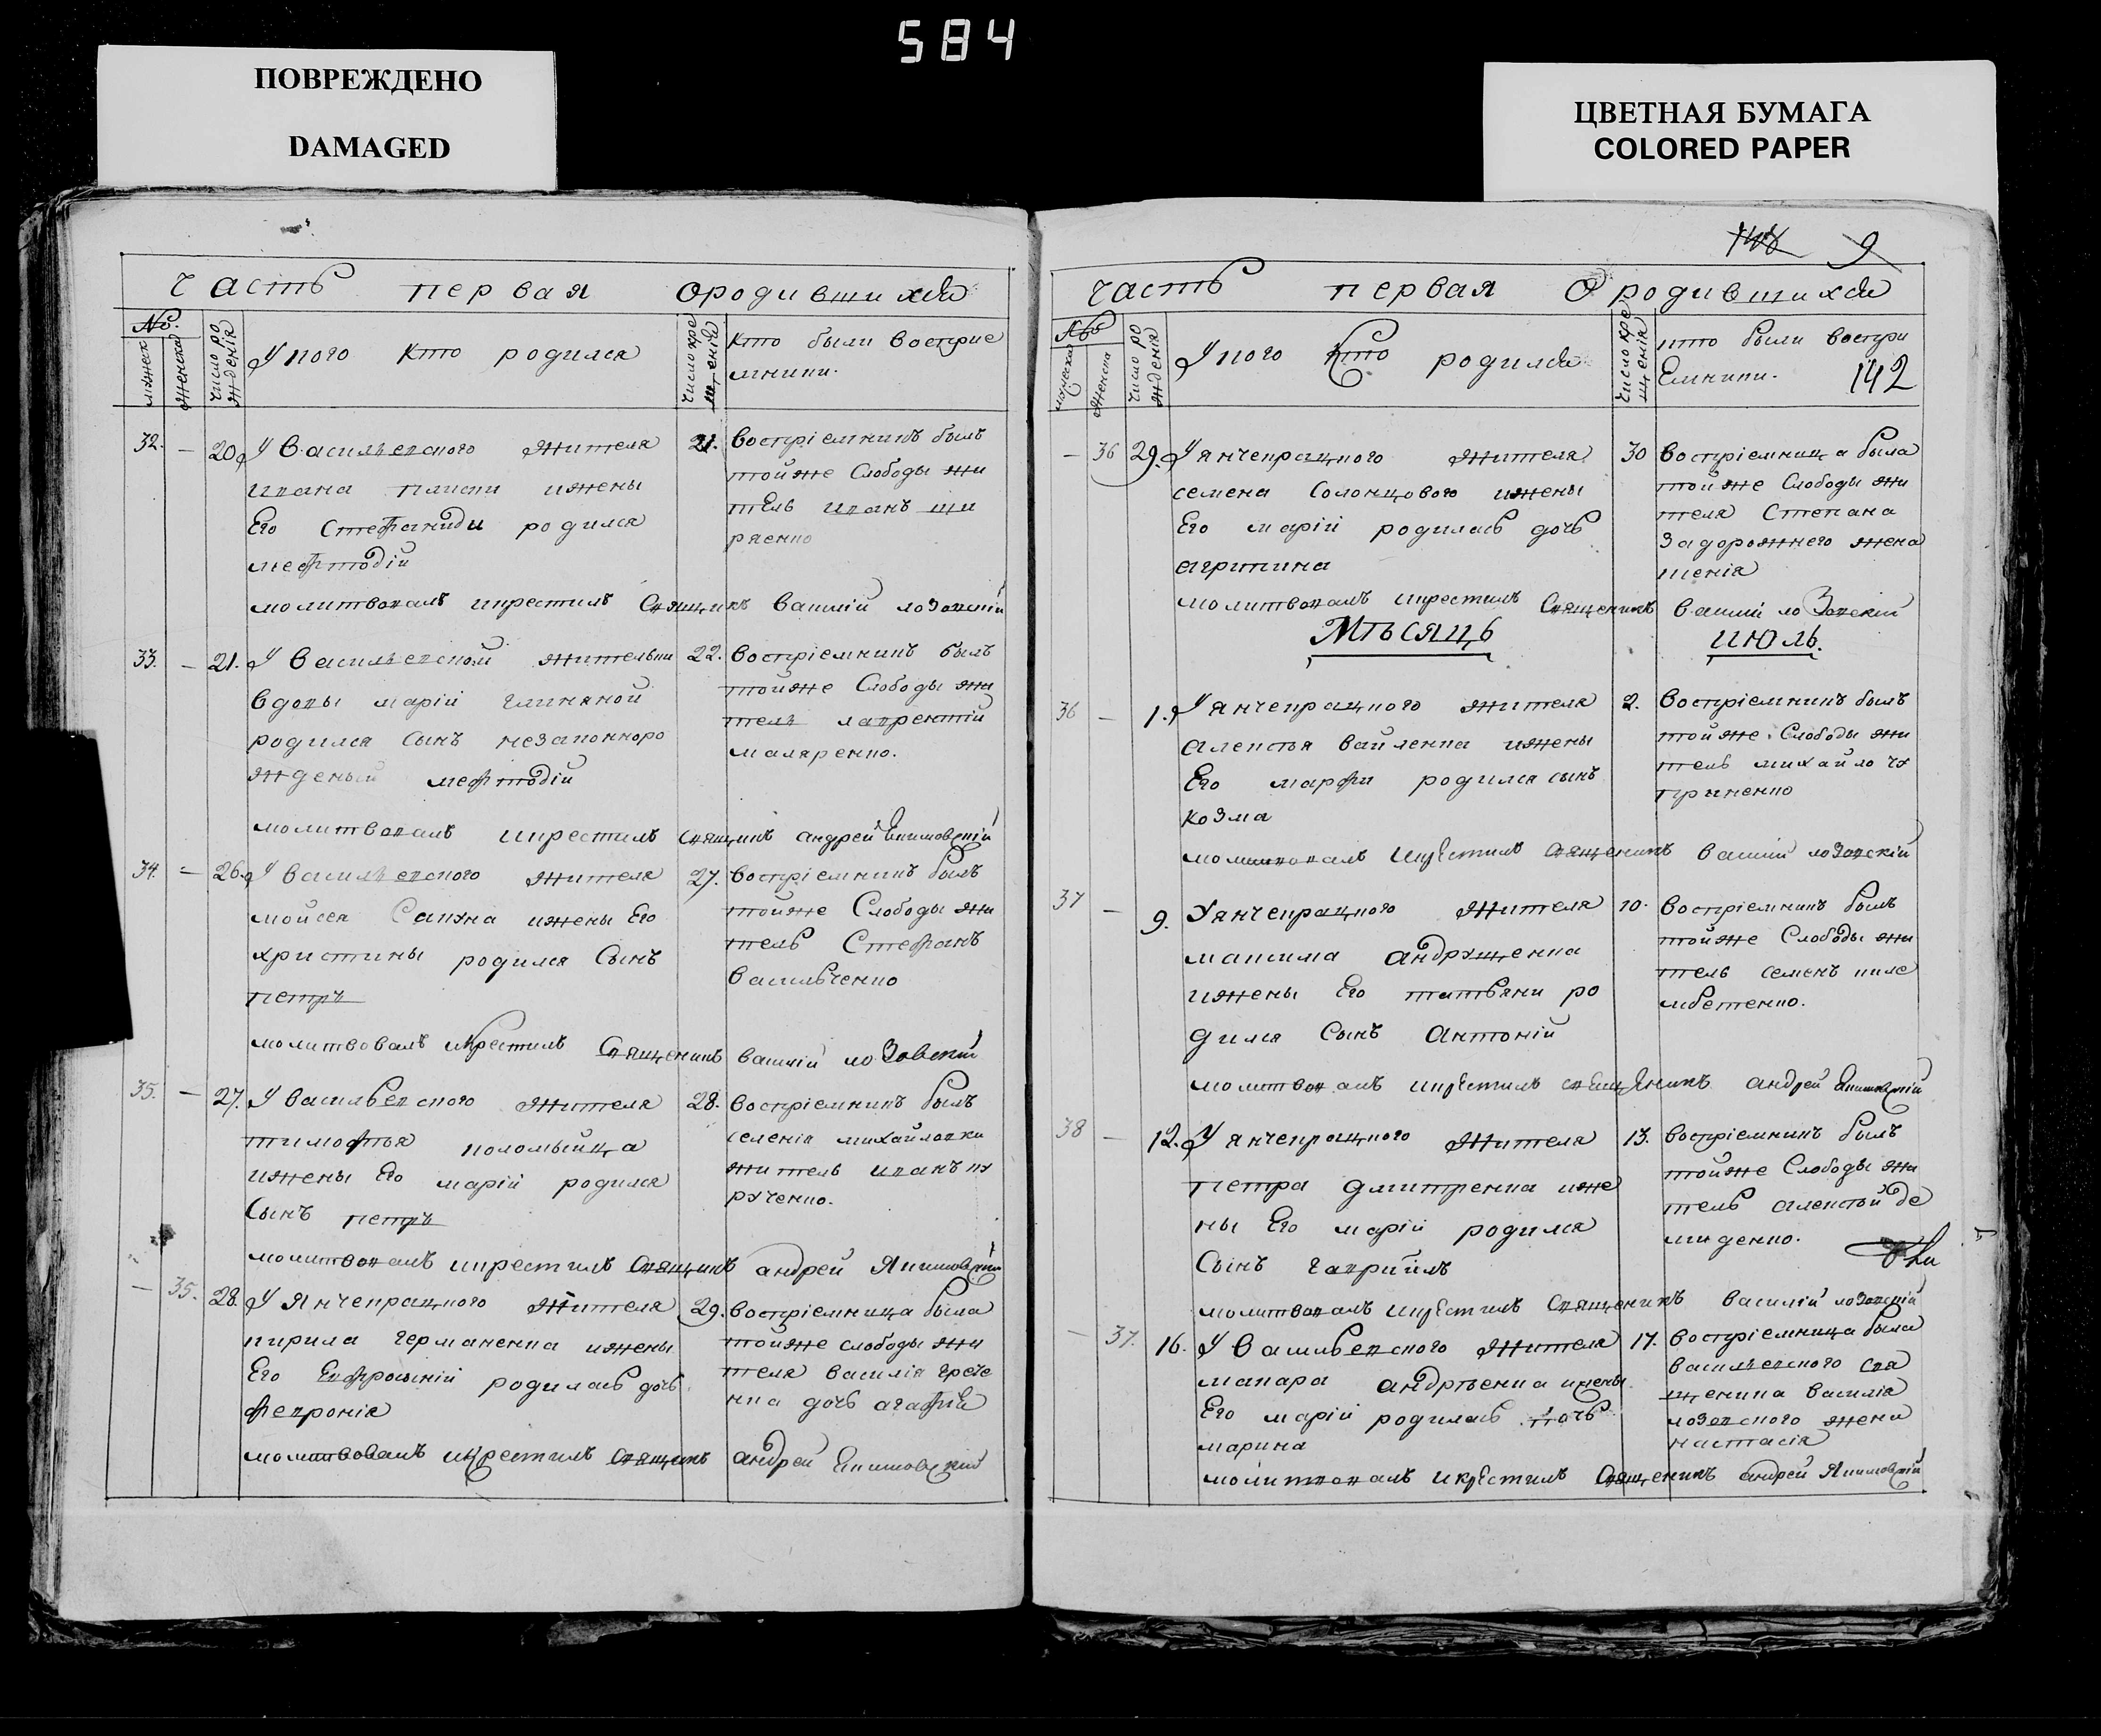 584
ПОВРЕЖДЕНО
DAMAGED
ЦВЕТНАЯ БУМАГА
COLORED PAPER
Часть первая ородившихся
№.
мужеск
женска
число ро
жденія
У кого кто родился
число кре
щенія
кто были восприе
мники.
32. — 20. У Васильевского жителя
ивана
ижены
Его Стефаниди родился
мефтодій
21. воспріемникъ былъ
тойже Слободы жи
тель иванъ ши
ряенко
молитвовалъ икрестилъ Свящникъ Василій лозовскій
33. — 21. У Васильевской жительки
вдовы марій глиняной
родился Сынъ незаконноро
жденый мефтодій
22. воспріемникъ былъ
тойже Слободы жи
тель лаврентій
маляренко.
молитвовалъ икрестилъ свящикъ андрей Якимовскій
34. — 26. У Васильевского жителя
мойсея Сапуна ижены Его
христины родился Сынъ
петръ
27. воспріемникъ былъ
тойже Слободы жи
тель Стефанъ
васильченко
молитвовалъ икрестилъ Священикъ василій лозовскій
35. — 27. У васильевского жителя
тимофтья коломыйца
ижены Его марій родился
Сынъ петръ
28. воспріемникъ былъ
селенія михайловки
житель иванъ ку
рученко.
молитвовалъ икрестилъ Свящикъ андрей Якимовскій
— 35. 28. У Янчекрацкого жителя
кирила германенка ижены
Его Евфросиній родилась дочь
февронія
29. воспріемница была
тойже слободы жи
теля василія грече
нка дочь агафія
молитвовалъ икрестилъ Свящикъ андрей Якимовскій
148 9
Часть первая О родившихся
№
мужеска
женска
число ро
жденія
У кого Кто родился
число кре
щенія
кто были воспри
Емники.
142
— 36 29. У янчекрацкого жителя
семена Солонцового ижены
Его марій родилась дочь
агрипина
30 воспріемница была
тойже Слободы жи
теля Степана
Задорожнего жена
ксенія
молитвовалъ икрестилъ Священикъ василій лозовскій
Мѣсяцъ июль.
36 — 1. У янчекрацкого жителя
алексѣя вайленка ижены
Его марфи родился сынъ
козма
2. воспріемникъ былъ
тойже Слободы жи
тель михайло чу
приненко
молитвовалъ икрестилъ Священикъ василій лозовскій
37 — 9. У янчекрацкого жителя
максима андрущенка
ижены Его татьяни ро
дился Сынъ Антоній
10. воспріемникъ былъ
тойже Слободы жи
тель семенъ киле
мбетенко.
молитвовалъ икрестилъ священикъ андрей Якимовскій
38 — 12. У янчекрацкого жителя
петра дмитренка иже
ны Его марій родился
Сынъ гавриилъ
13. воспріемникъ былъ
тойже Слободы жи
тель алексѣй де
миденко.
молитвовалъ икрестилъ Священикъ василій лозовскій
— 37. 16. У васильевского жителя
макара андрѣенка ижены
Его марій родилась дочь
марина
17. воспріемница была
васильевского свя
щеника василія
лозовского жена
настасія
молитвовалъ икрестилъ Священикъ андрей Якимовскій